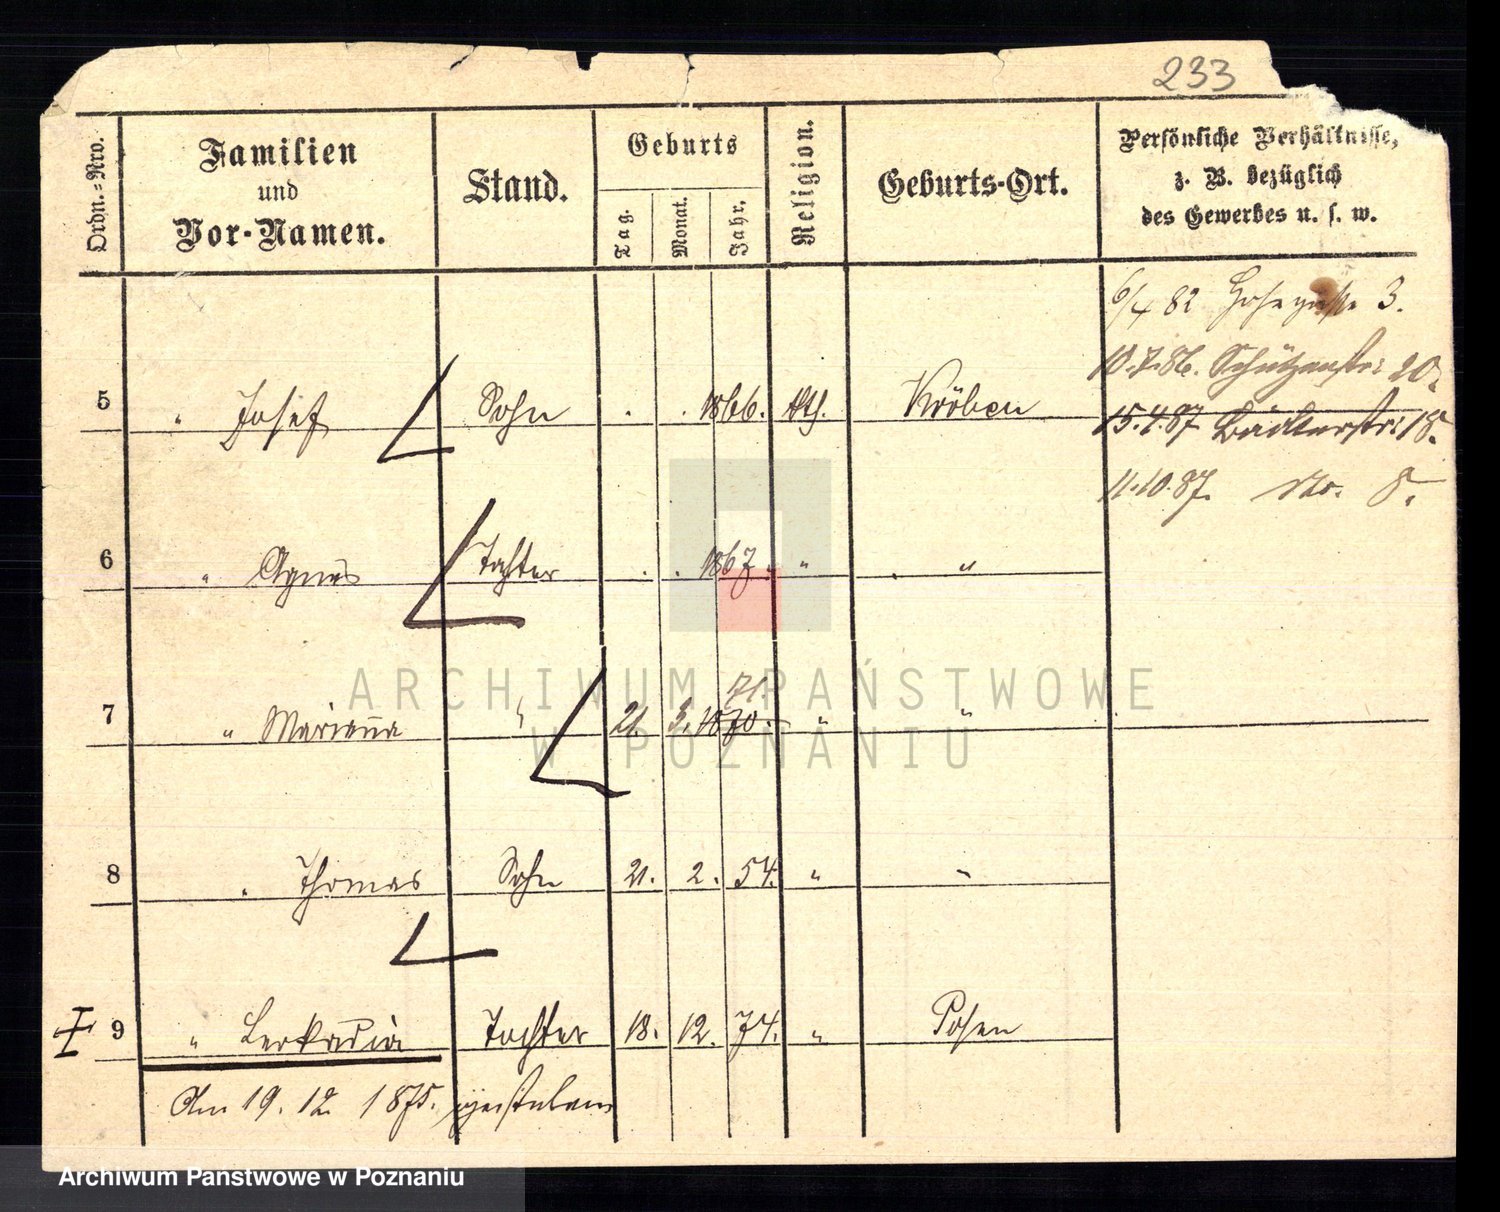 233
Ordn.=Nro.
Familien
und
Vor-Namen.
Stand.
Geburts
Tag.
Monat.
Jahr.
Religion.
Geburts-Ort.
Persönliche Verhältnisse,
z. B. bezüglich
des Gewerbes u. s. w.
6/4 82 3.
10.7.86. Schützenstr: 20.
5 " Josef Sohn . . 1866. kth. Kröben
15.4.87 18.
11.10.87. No. 8.
6 " Agnes Tochter . . 1867 " "
71.
7 " Marianna " 21. 3. 1870. " "
8 " Thomas Sohn 21. 2. 54. " "
9 " Leokadia Tochter 18. 12. 74. " Posen
Am 19. 12. 1875. gestorben
ARCHIWUM PAŃSTWOWE
W POZNANIU
Archiwum Państwowe w Poznaniu